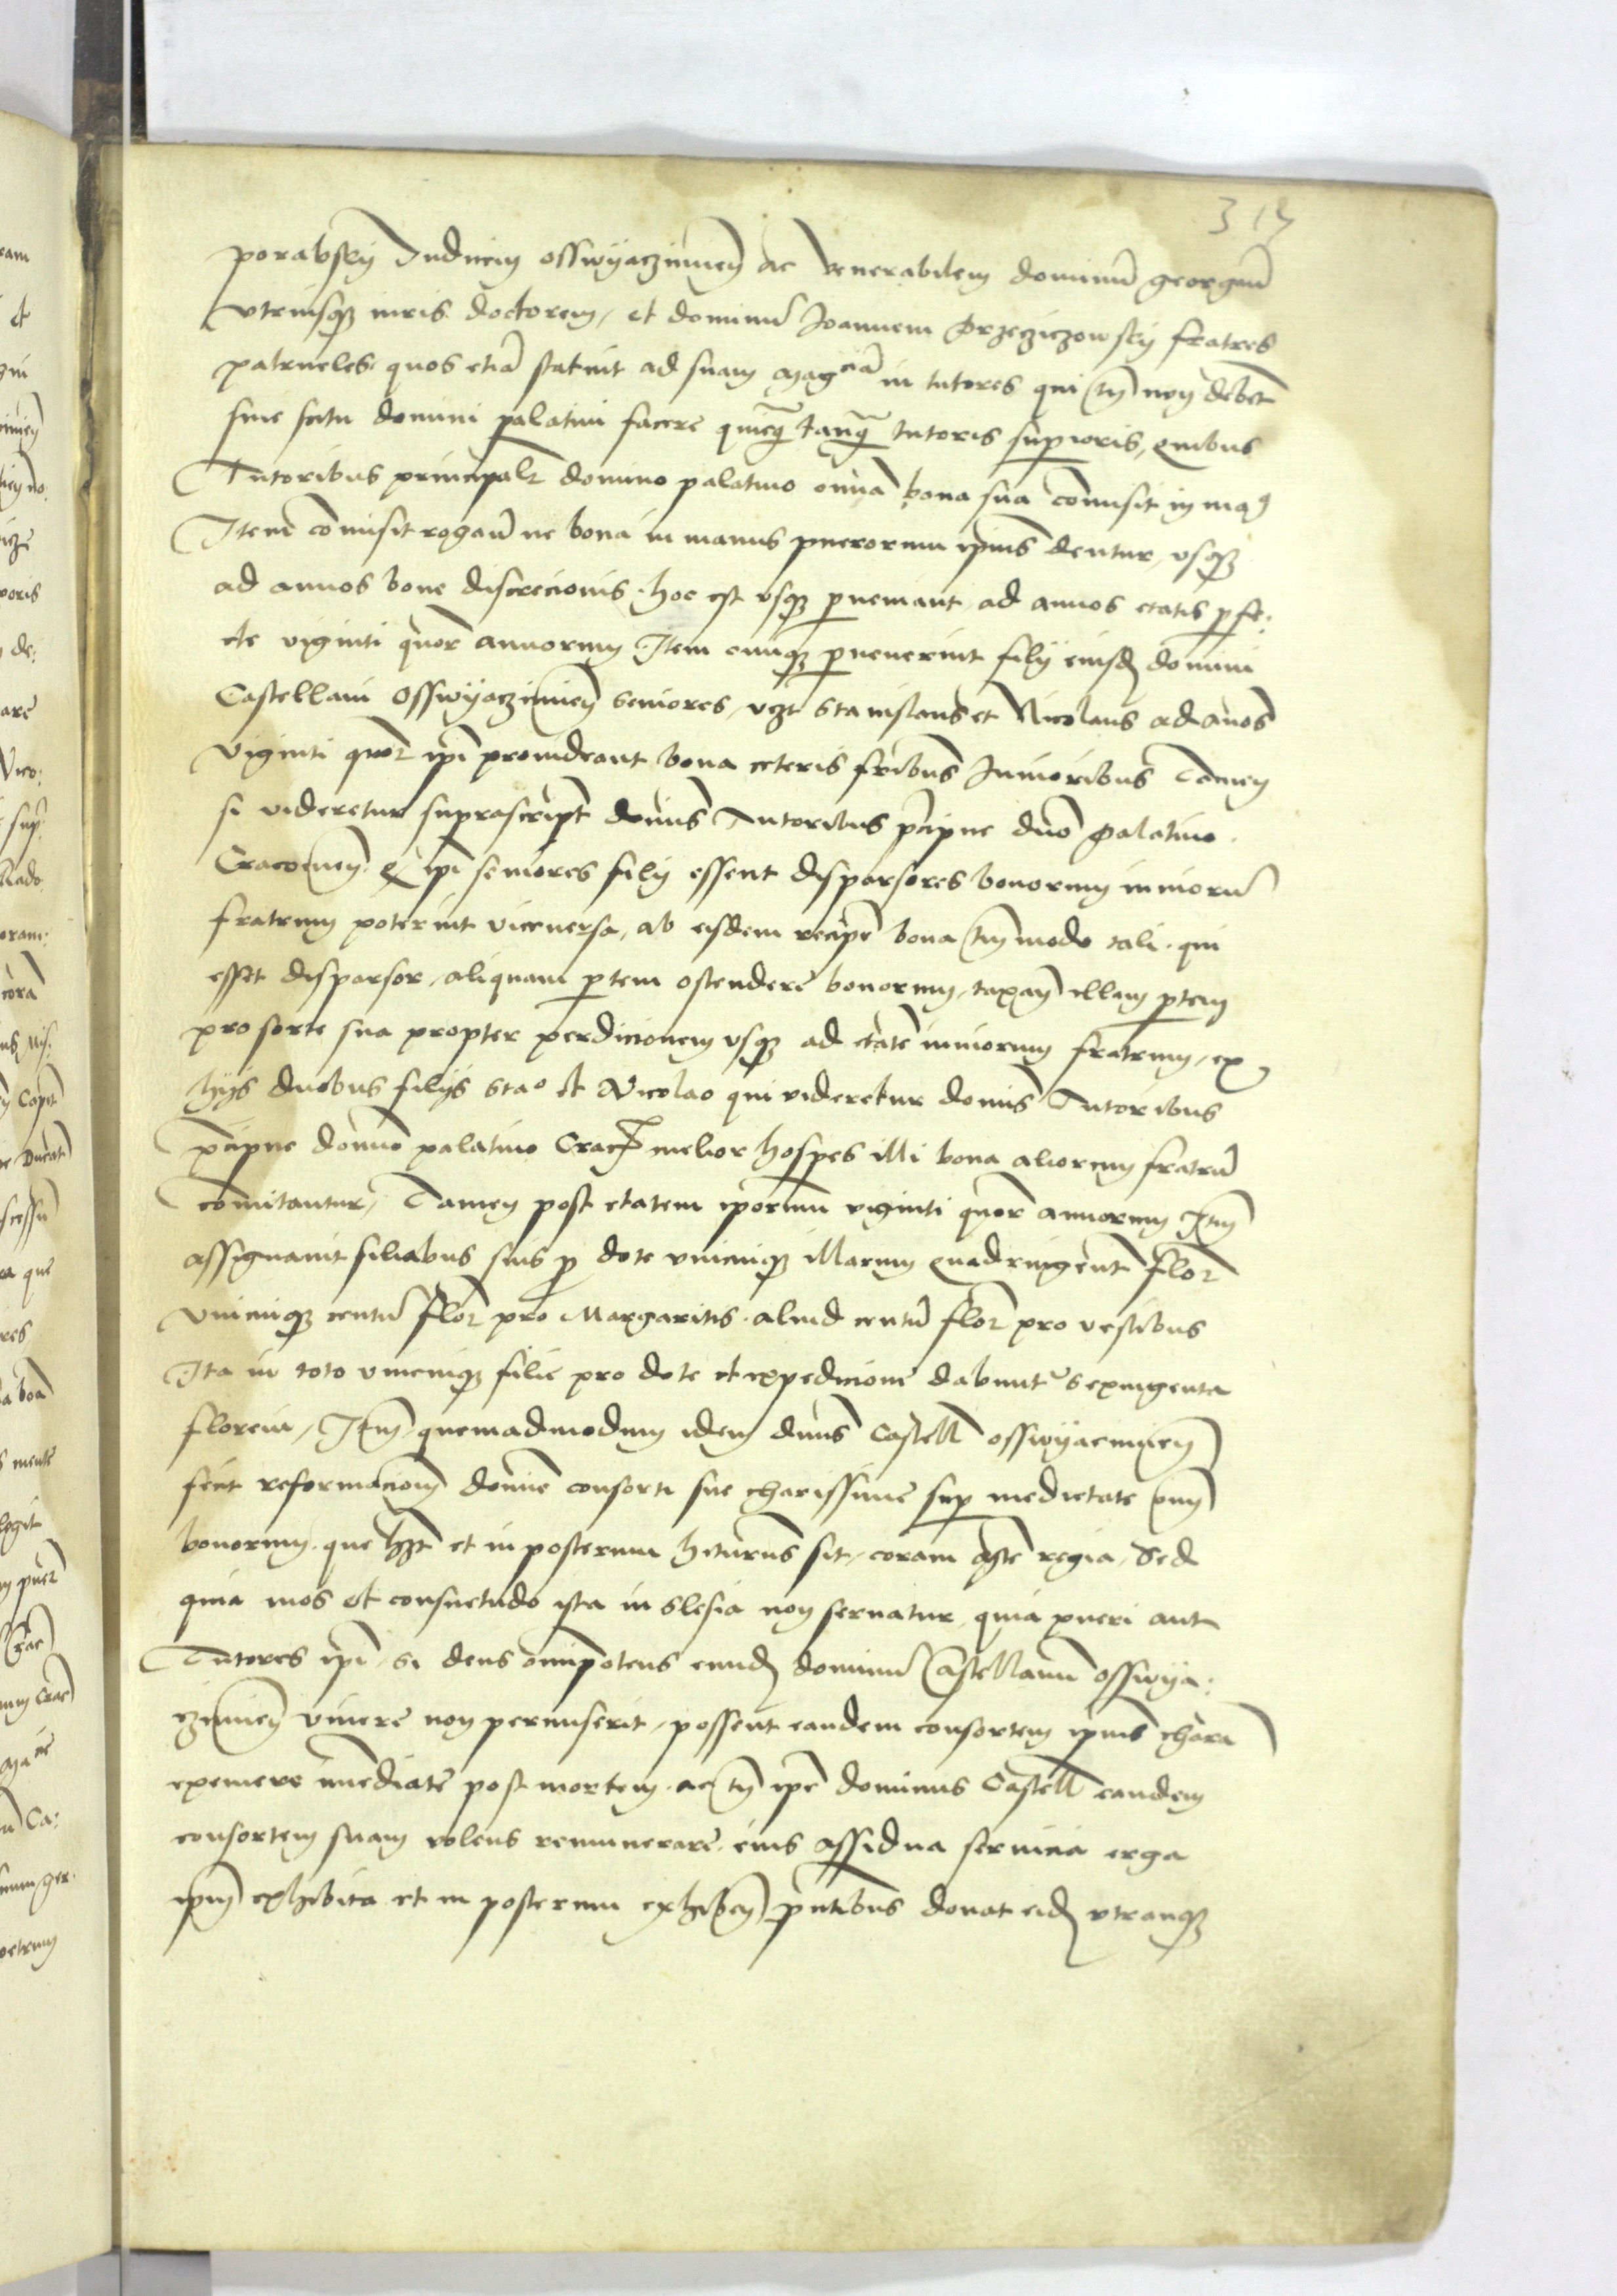 319
porabsky Judicem osswyaczimen̄ ac venerabilem dominū georgiū
vtriusqз iuris doctorem, et dominū Joannem Przecziczowsky fratres
patrueles quos etiā statuit ad suam Magᶜⁱᵃ in tutores qui tn̄ non debēt
sine scitu domini palatini facere quicq̄ tanq̄ tutoris supioris, quibus
Tutoribus principalr domino palatino omīa bona sua cōmisit in maꝰ
Item cōmisit rogaū ne bona in manus puerorum ipīus dentur, vsqз
ad annos bone discrecionis. hoc est vsqз pueniant ad annos etatis pfe:
cte viginti quor annorum Item cumqз puenerint filij eiusd domini
Castellani Osswyaczimien̄ seniores, vizt Stanislaus et Nicolaus ad annos
viginti quor ipī prouideant bona ceteris frībus Junioribus Tamen
si videretur suprascript dominis Tutoribus pcipue duo Palatino
Cracouien̄ q ipī seniores filij essent disparsores bonorum iuniorū
fratrum poterint viceuersa, ab eisdem recipe bona tn̄ modo tali. qui
esset disparsor, aliquam ptem ostendere bonorum, taxan̄ illam ptem
pro sorte sua propter perdicionem vsqз ad etatē iuniorum fratrum, ex
hijs duobus filijs Staᵒ et Nicolao qui videretur domīs Tutoribus
pcipue domīo palatino Crac melior hospes illi bona aliorum fratrū
cōmitantur, Tamen post etatem ipsorum viginti quor annorum Itm̄
assignauit filiabus suis p dote vnicuiqз illarum quadringent flor
vnicuiqз centū flor pro Margaritis. aliud centū flor pro vestibus
Ita in toto vnicuiqз filie pro dote et expedicione dabuntr sexingenta
floreni, Itm̄ quemadmodum idem dn̄us Castell osswyacimien̄
fecit reformacionem domīe consorti sue charissime sup medietate om̄
bonorum que hzt et in posterum hiturus sit, coram Mte regia, Sed
quia mos et consuetudo ista in Slesia non seruatur, quia pueri aut
Tutores ipī, si deus omīpotens eund dominū Castellanū Osswya:
czimien̄ viuere non permiserit, possent eandem consortem ipīus charā
exemere imediate post mortem. ac tn̄ ipē dominus Castell eandem
consortem suam volens remunerare eius assidua seruicia erga
ipm̄ exhibita et in posterum exhiben̄ pn̄tibus donat eid vtranqз